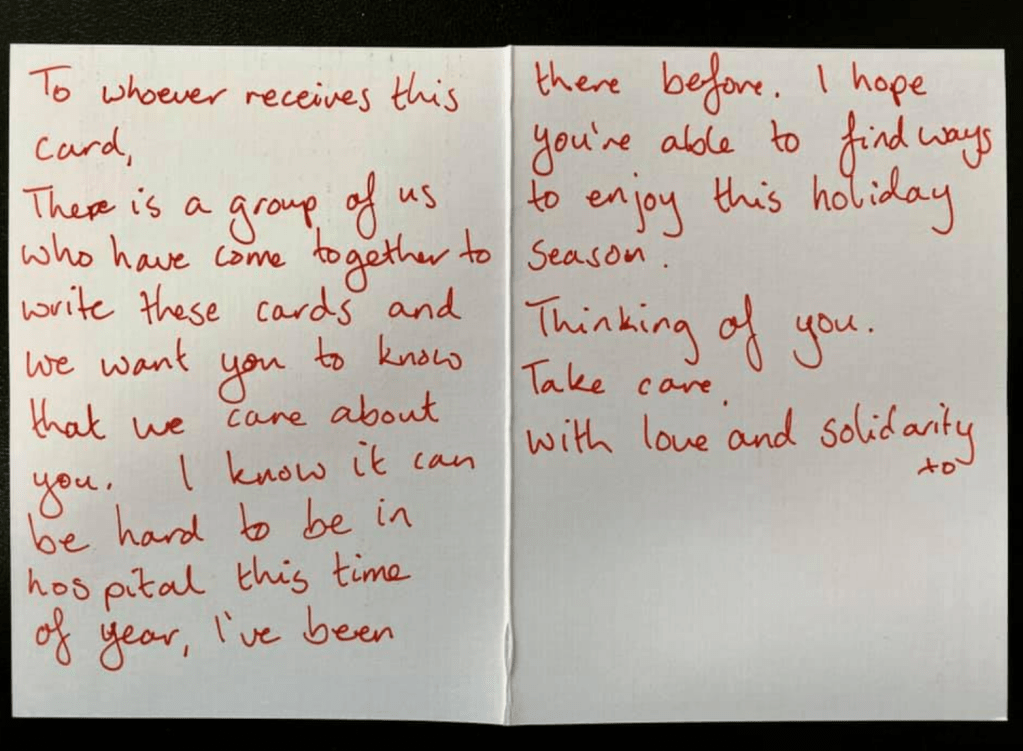 To whoever receives this
card,
There is a group of us
who have come together to
write these cards and
we want you to know
that we care about
you. I know it can
be hard to be in
hospital this time
of year, I've been
there before. I hope
you're able to find ways
to enjoy this holiday
season.
Thinking of you.
Take care.
with love and solidarity
xo